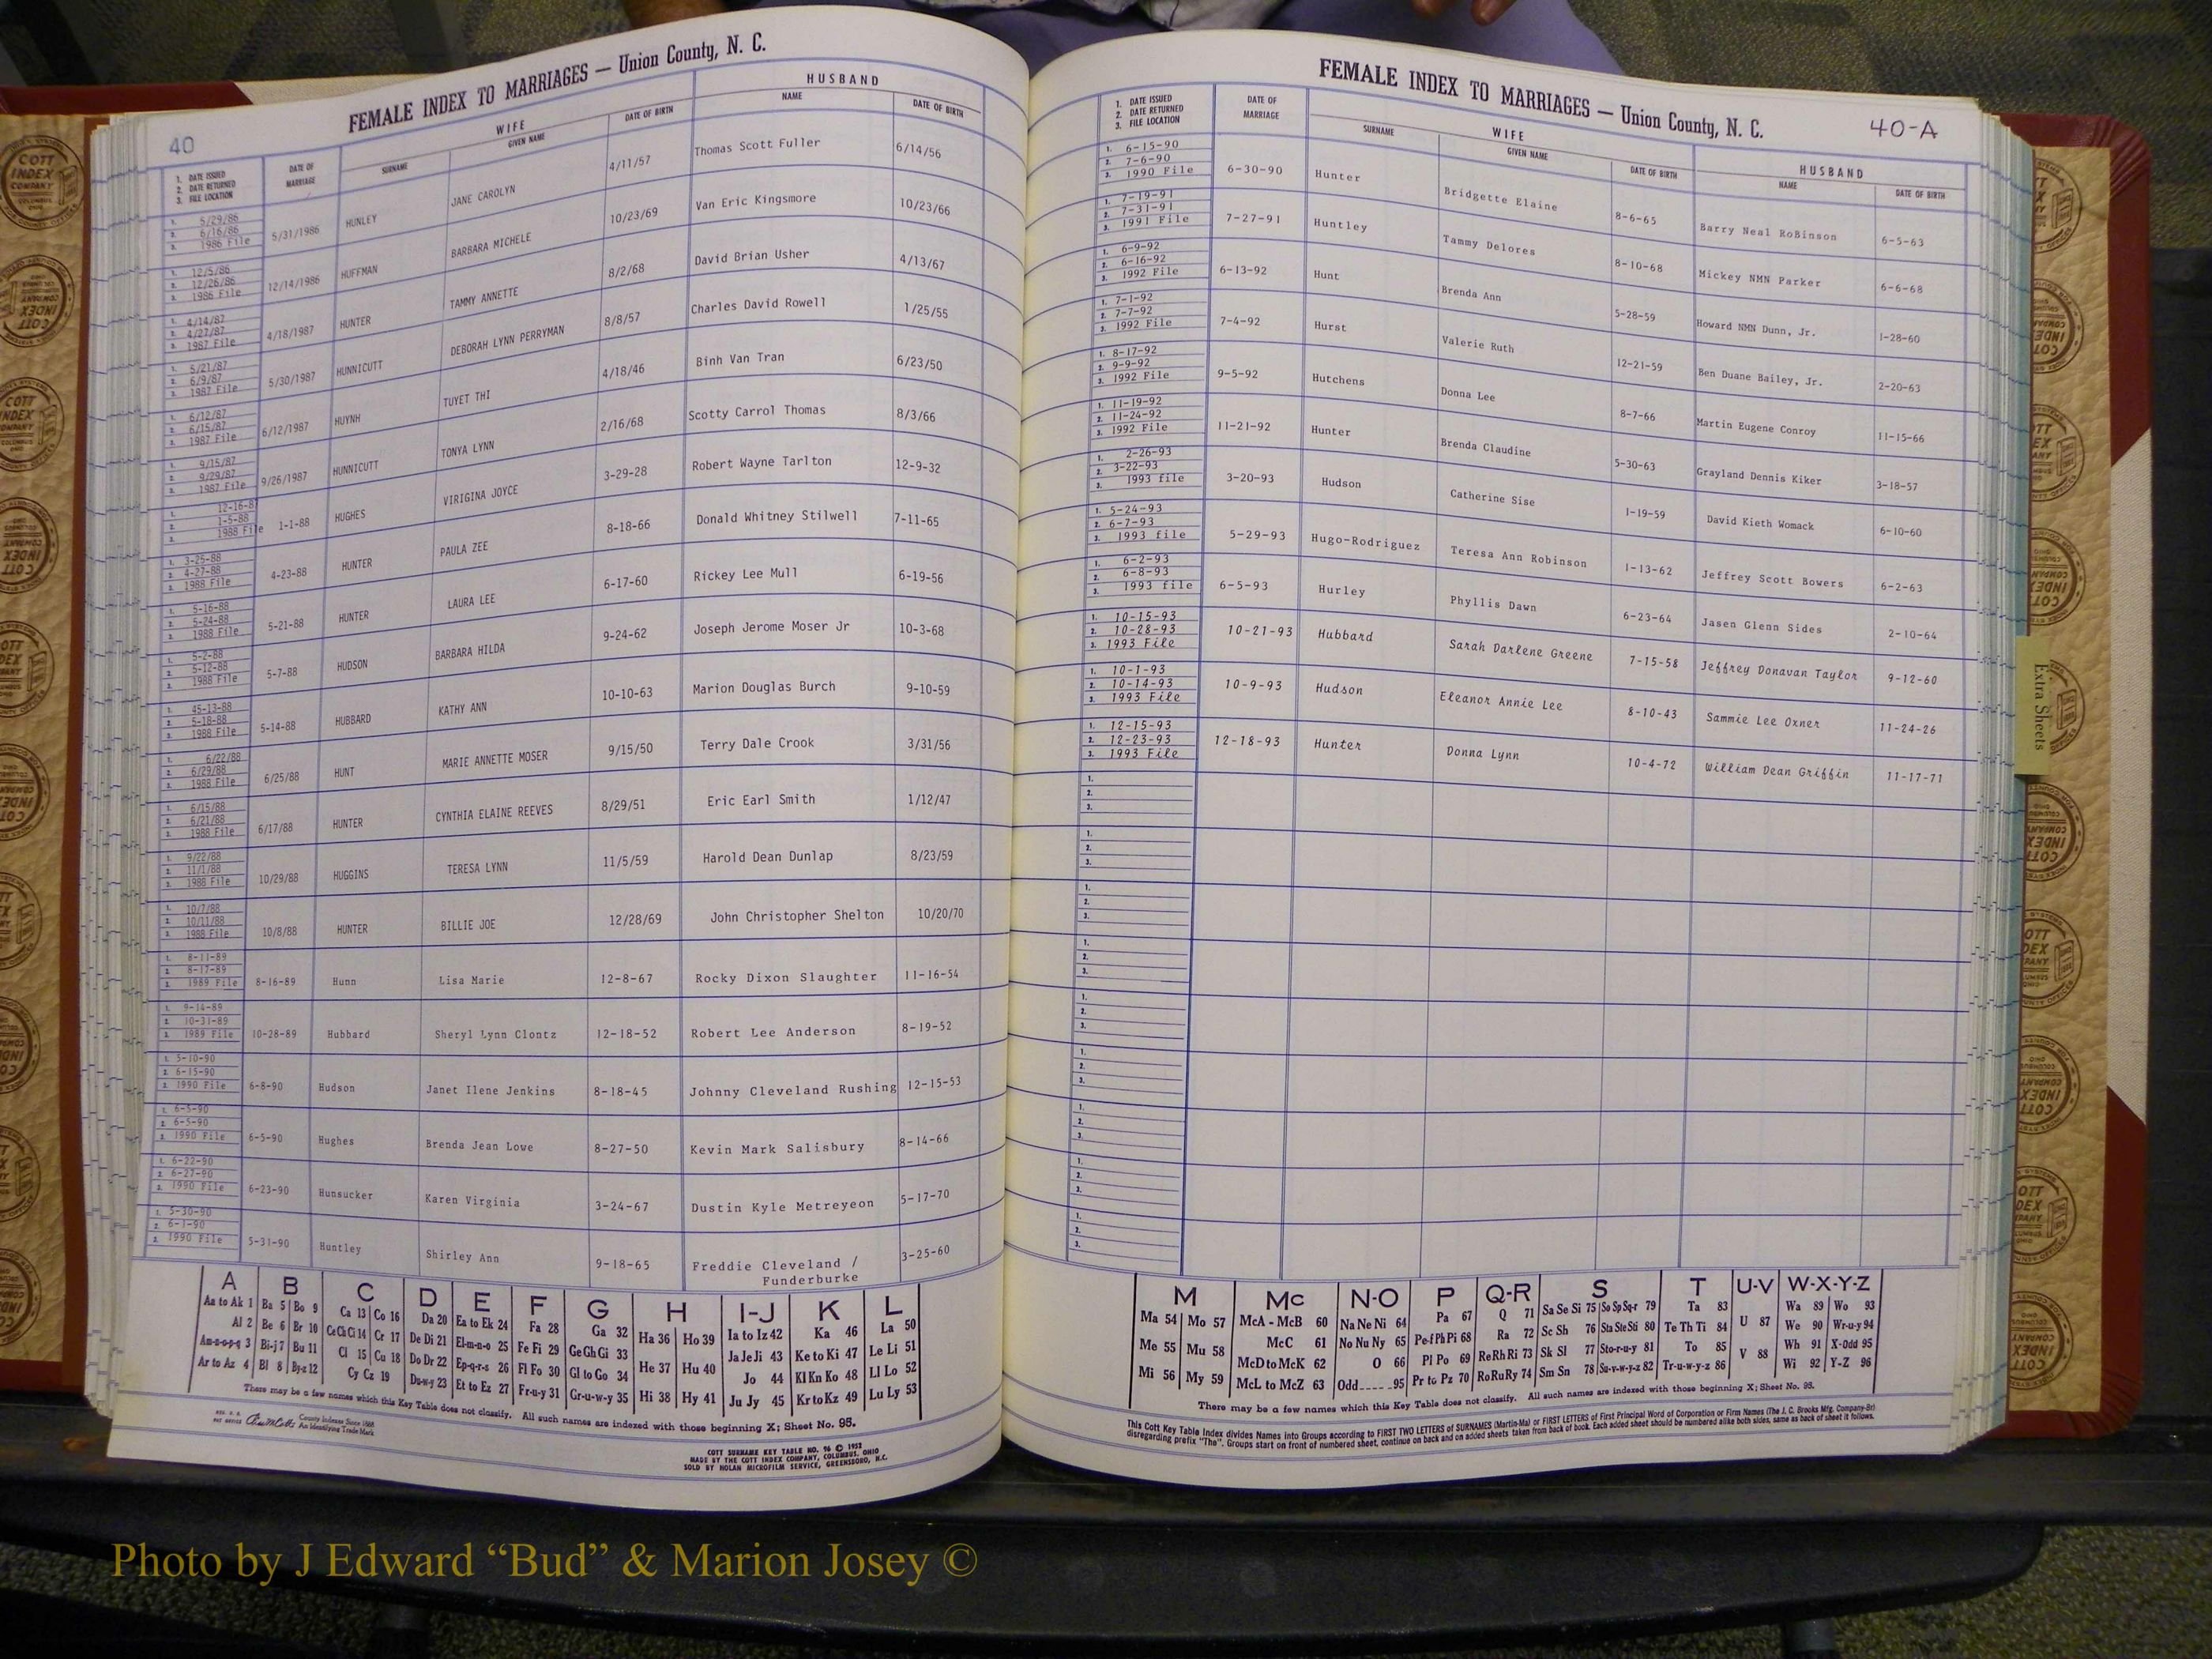 40
FEMALE INDEX TO MARRIAGES — Union County, N. C.
1. DATE ISSUED 2. DATE RETURNED 3. FILE LOCATION | DATE OF MARRIAGE | WIFE SURNAME | GIVEN NAME | DATE OF BIRTH | HUSBAND NAME | DATE OF BIRTH
1. 5/29/86 2. 6/16/86 3. 1986 File 5/31/1986 HUNLEY JANE CAROLYN 4/11/57 Thomas Scott Fuller 6/14/56
1. 12/5/86 2. 12/26/86 3. 1986 File 12/14/1986 HUFFMAN BARBARA MICHELE 10/23/69 Van Eric Kingsmore 10/23/66
1. 4/14/87 2. 4/27/87 3. 1987 File 4/18/1987 HUNTER TAMMY ANNETTE 8/2/68 David Brian Usher 4/13/67
1. 5/21/87 2. 6/9/87 3. 1987 File 5/30/1987 HUNNICUTT DEBORAH LYNN PERRYMAN 8/8/57 Charles David Rowell 1/25/55
1. 6/12/87 2. 6/15/87 3. 1987 File 6/12/1987 HUYNH TUYET THI 4/18/46 Binh Van Tran 6/23/50
1. 9/15/87 2. 9/29/87 3. 1987 File 9/26/1987 HUNNICUTT TONYA LYNN 2/16/68 Scotty Carrol Thomas 8/3/66
1. 12-16-8 2. 1-5-88 3. 1988 File 1-1-88 HUGHES VIRIGINA JOYCE 3-29-28 Robert Wayne Tarlton 12-9-32
1. 3-25-88 2. 4-27-88 3. 1988 File 4-23-88 HUNTER PAULA ZEE 8-18-66 Donald Whitney Stilwell 7-11-65
1. 5-16-88 2. 5-24-88 3. 1988 File 5-21-88 HUNTER LAURA LEE 6-17-60 Rickey Lee Mull 6-19-56
1. 5-2-88 2. 5-12-88 3. 1988 File 5-7-88 HUDSON BARBARA HILDA 9-24-62 Joseph Jerome Moser Jr 10-3-68
1. 45-13-88 2. 5-18-88 3. 1988 File 5-14-88 HUBBARD KATHY ANN 10-10-63 Marion Douglas Burch 9-10-59
1. 6/22/88 2. 6/29/88 3. 1988 File 6/25/88 HUNT MARIE ANNETTE MOSER 9/15/50 Terry Dale Crook 3/31/56
1. 6/15/88 2. 6/21/88 3. 1988 File 6/17/88 HUNTER CYNTHIA ELAINE REEVES 8/29/51 Eric Earl Smith 1/12/47
1. 9/22/88 2. 11/1/88 3. 1988 File 10/29/88 HUGGINS TERESA LYNN 11/5/59 Harold Dean Dunlap 8/23/59
1. 10/7/88 2. 10/11/88 3. 1988 File 10/8/88 HUNTER BILLIE JOE 12/28/69 John Christopher Shelton 10/20/70
1. 8-11-89 2. 8-17-89 3. 1989 File 8-16-89 Hunn Lisa Marie 12-8-67 Rocky Dixon Slaughter 11-16-54
1. 9-14-89 2. 10-31-89 3. 1989 File 10-28-89 Hubbard Sheryl Lynn Clontz 12-18-52 Robert Lee Anderson 8-19-52
1. 5-10-90 2. 6-15-90 3. 1990 File 6-8-90 Hudson Janet Ilene Jenkins 8-18-45 Johnny Cleveland Rushing 12-15-53
1. 6-5-90 2. 6-5-90 3. 1990 File 6-5-90 Hughes Brenda Jean Lowe 8-27-50 Kevin Mark Salisbury 8-14-66
1. 6-22-90 2. 6-27-90 3. 1990 File 6-23-90 Hunsucker Karen Virginia 3-24-67 Dustin Kyle Metreyeon 5-17-70
1. 5-30-90 2. 6-1-90 3. 1990 File 5-31-90 Huntley Shirley Ann 9-18-65 Freddie Cleveland / Funderburke 3-25-60
A B C D E F G H I-J K L
Aa to Ak 1 Ba 5 Bo 9 Ca 13 Co 16 Da 20 Ea to Ek 24 Fa 28 Ga 32 Ha 36 Ho 39 Ia to Iz 42 Ka 46 La 50
Al 2 Be 6 Br 10 Ce Ch Ci 14 Cr 17 De Di 21 El-m-n-o 25 Fe Fi 29 Ge Gh Gi 33 He 37 Hu 40 Ja Je Ji 43 Ke to Ki 47 Le Li 51
Am-n-o-p-q 3 Bi-j 7 Bu 11 Cl 15 Cu 18 Do Dr 22 Ep-q-r-s 26 Fl Fo 30 Gl to Go 34 Hi 38 Hy 41 Jo 44 Kl Kn Ko 48 Ll Lo 52
Ar to Az 4 Bl 8 By-z 12 Cy Cz 19 Du-w-y 23 Et to Ez 27 Fr-u-y 31 Gr-u-w-y 35 Ju Jy 45 Kr to Kz 49 Lu Ly 53
There may be a few names which this Key Table does not classify. All such names are indexed with those beginning X; Sheet No. 95.
County Indexes Since 1888
An Identifying Trade Mark
COTT SURNAME KEY TABLE NO. 96 © 1952
MADE BY THE COTT INDEX COMPANY, COLUMBUS, OHIO
SOLD BY NOLAN MICROFILM SERVICE, GREENSBORO, N.C.
FEMALE INDEX TO MARRIAGES — Union County, N. C.
40-A
1. DATE ISSUED 2. DATE RETURNED 3. FILE LOCATION | DATE OF MARRIAGE | WIFE SURNAME | GIVEN NAME | DATE OF BIRTH | HUSBAND NAME | DATE OF BIRTH
1. 6-15-90 2. 7-6-90 3. 1990 File 6-30-90 Hunter Bridgette Elaine 8-6-65 Barry Neal RoBinson 6-5-63
1. 7-19-91 2. 7-31-91 3. 1991 File 7-27-91 Huntley Tammy Delores 8-10-68 Mickey NMN Parker 6-6-68
1. 6-9-92 2. 6-16-92 3. 1992 File 6-13-92 Hunt Brenda Ann 5-28-59 Howard NMN Dunn, Jr. 1-28-60
1. 7-1-92 2. 7-7-92 3. 1992 File 7-4-92 Hurst Valerie Ruth 12-21-59 Ben Duane Bailey, Jr. 2-20-63
1. 8-17-92 2. 9-9-92 3. 1992 File 9-5-92 Hutchens Donna Lee 8-7-66 Martin Eugene Conroy 11-15-66
1. 11-19-92 2. 11-24-92 3. 1992 File 11-21-92 Hunter Brenda Claudine 5-30-63 Grayland Dennis Kiker 3-18-57
1. 2-26-93 2. 3-22-93 3. 1993 file 3-20-93 Hudson Catherine Sise 1-19-59 David Kieth Womack 6-10-60
1. 5-24-93 2. 6-7-93 3. 1993 file 5-29-93 Hugo-Rodriguez Teresa Ann Robinson 1-13-62 Jeffrey Scott Bowers 6-2-63
1. 6-2-93 2. 6-8-93 3. 1993 file 6-5-93 Hurley Phyllis Dawn 6-23-64 Jasen Glenn Sides 2-10-64
1. 10-15-93 2. 10-28-93 3. 1993 File 10-21-93 Hubbard Sarah Darlene Greene 7-15-58 Jeffrey Donavan Taylor 9-12-60
1. 10-1-93 2. 10-14-93 3. 1993 File 10-9-93 Hudson Eleanor Annie Lee 8-10-43 Sammie Lee Oxner 11-24-26
1. 12-15-93 2. 12-23-93 3. 1993 File 12-18-93 Hunter Donna Lynn 10-4-72 William Dean Griffin 11-17-71
1. 2. 3.
1. 2. 3.
1. 2. 3.
1. 2. 3.
1. 2. 3.
1. 2. 3.
1. 2. 3.
1. 2. 3.
1. 2. 3.
M Mc N-O P Q-R S T U-V W-X-Y-Z
Ma 54 Mo 57 McA - McB 60 Na Ne Ni 64 Pa 67 Q 71 Sa Se Si 75 So Sp Sq-r 79 Ta 83 U 87 Wa 89 Wo 93
Me 55 Mu 58 McC 61 No Nu Ny 65 Pe-f Ph Pi 68 Ra 72 Sc Sh 76 Sta Ste Sti 80 Te Th Ti 84 V 88 We 90 Wr-u-y 94
Mi 56 My 59 McD to McK 62 O 66 Pl Po 69 Re Rh Ri 73 Sk Sl 77 Sto-r-u-y 81 To 85 Wh 91 X-Odd 95
McL to McZ 63 Odd 95 Pr to Pz 70 Ro Ru Ry 74 Sm Sn 78 Su-v-w-y-z 82 Tr-u-w-y-z 86 Wi 92 Y-Z 96
There may be a few names which this Key Table does not classify. All such names are indexed with those beginning X; Sheet No. 95.
This Cott Key Table Index divides Names into Groups according to FIRST TWO LETTERS of SURNAMES (Martin-Ma) or FIRST LETTERS of First Principal Word of Corporation or Firm Names (The J. C. Brooks Mfg. Company-Br)
disregarding prefix "The". Groups start on front of numbered sheet, continue on back and on added sheets taken from back of book. Each added sheet should be numbered alike both sides, same as back of sheet it follows.
Extra Sheets
COTT
INDEX
COMPANY
COLUMBUS
OHIO
Photo by J Edward “Bud” & Marion Josey ©